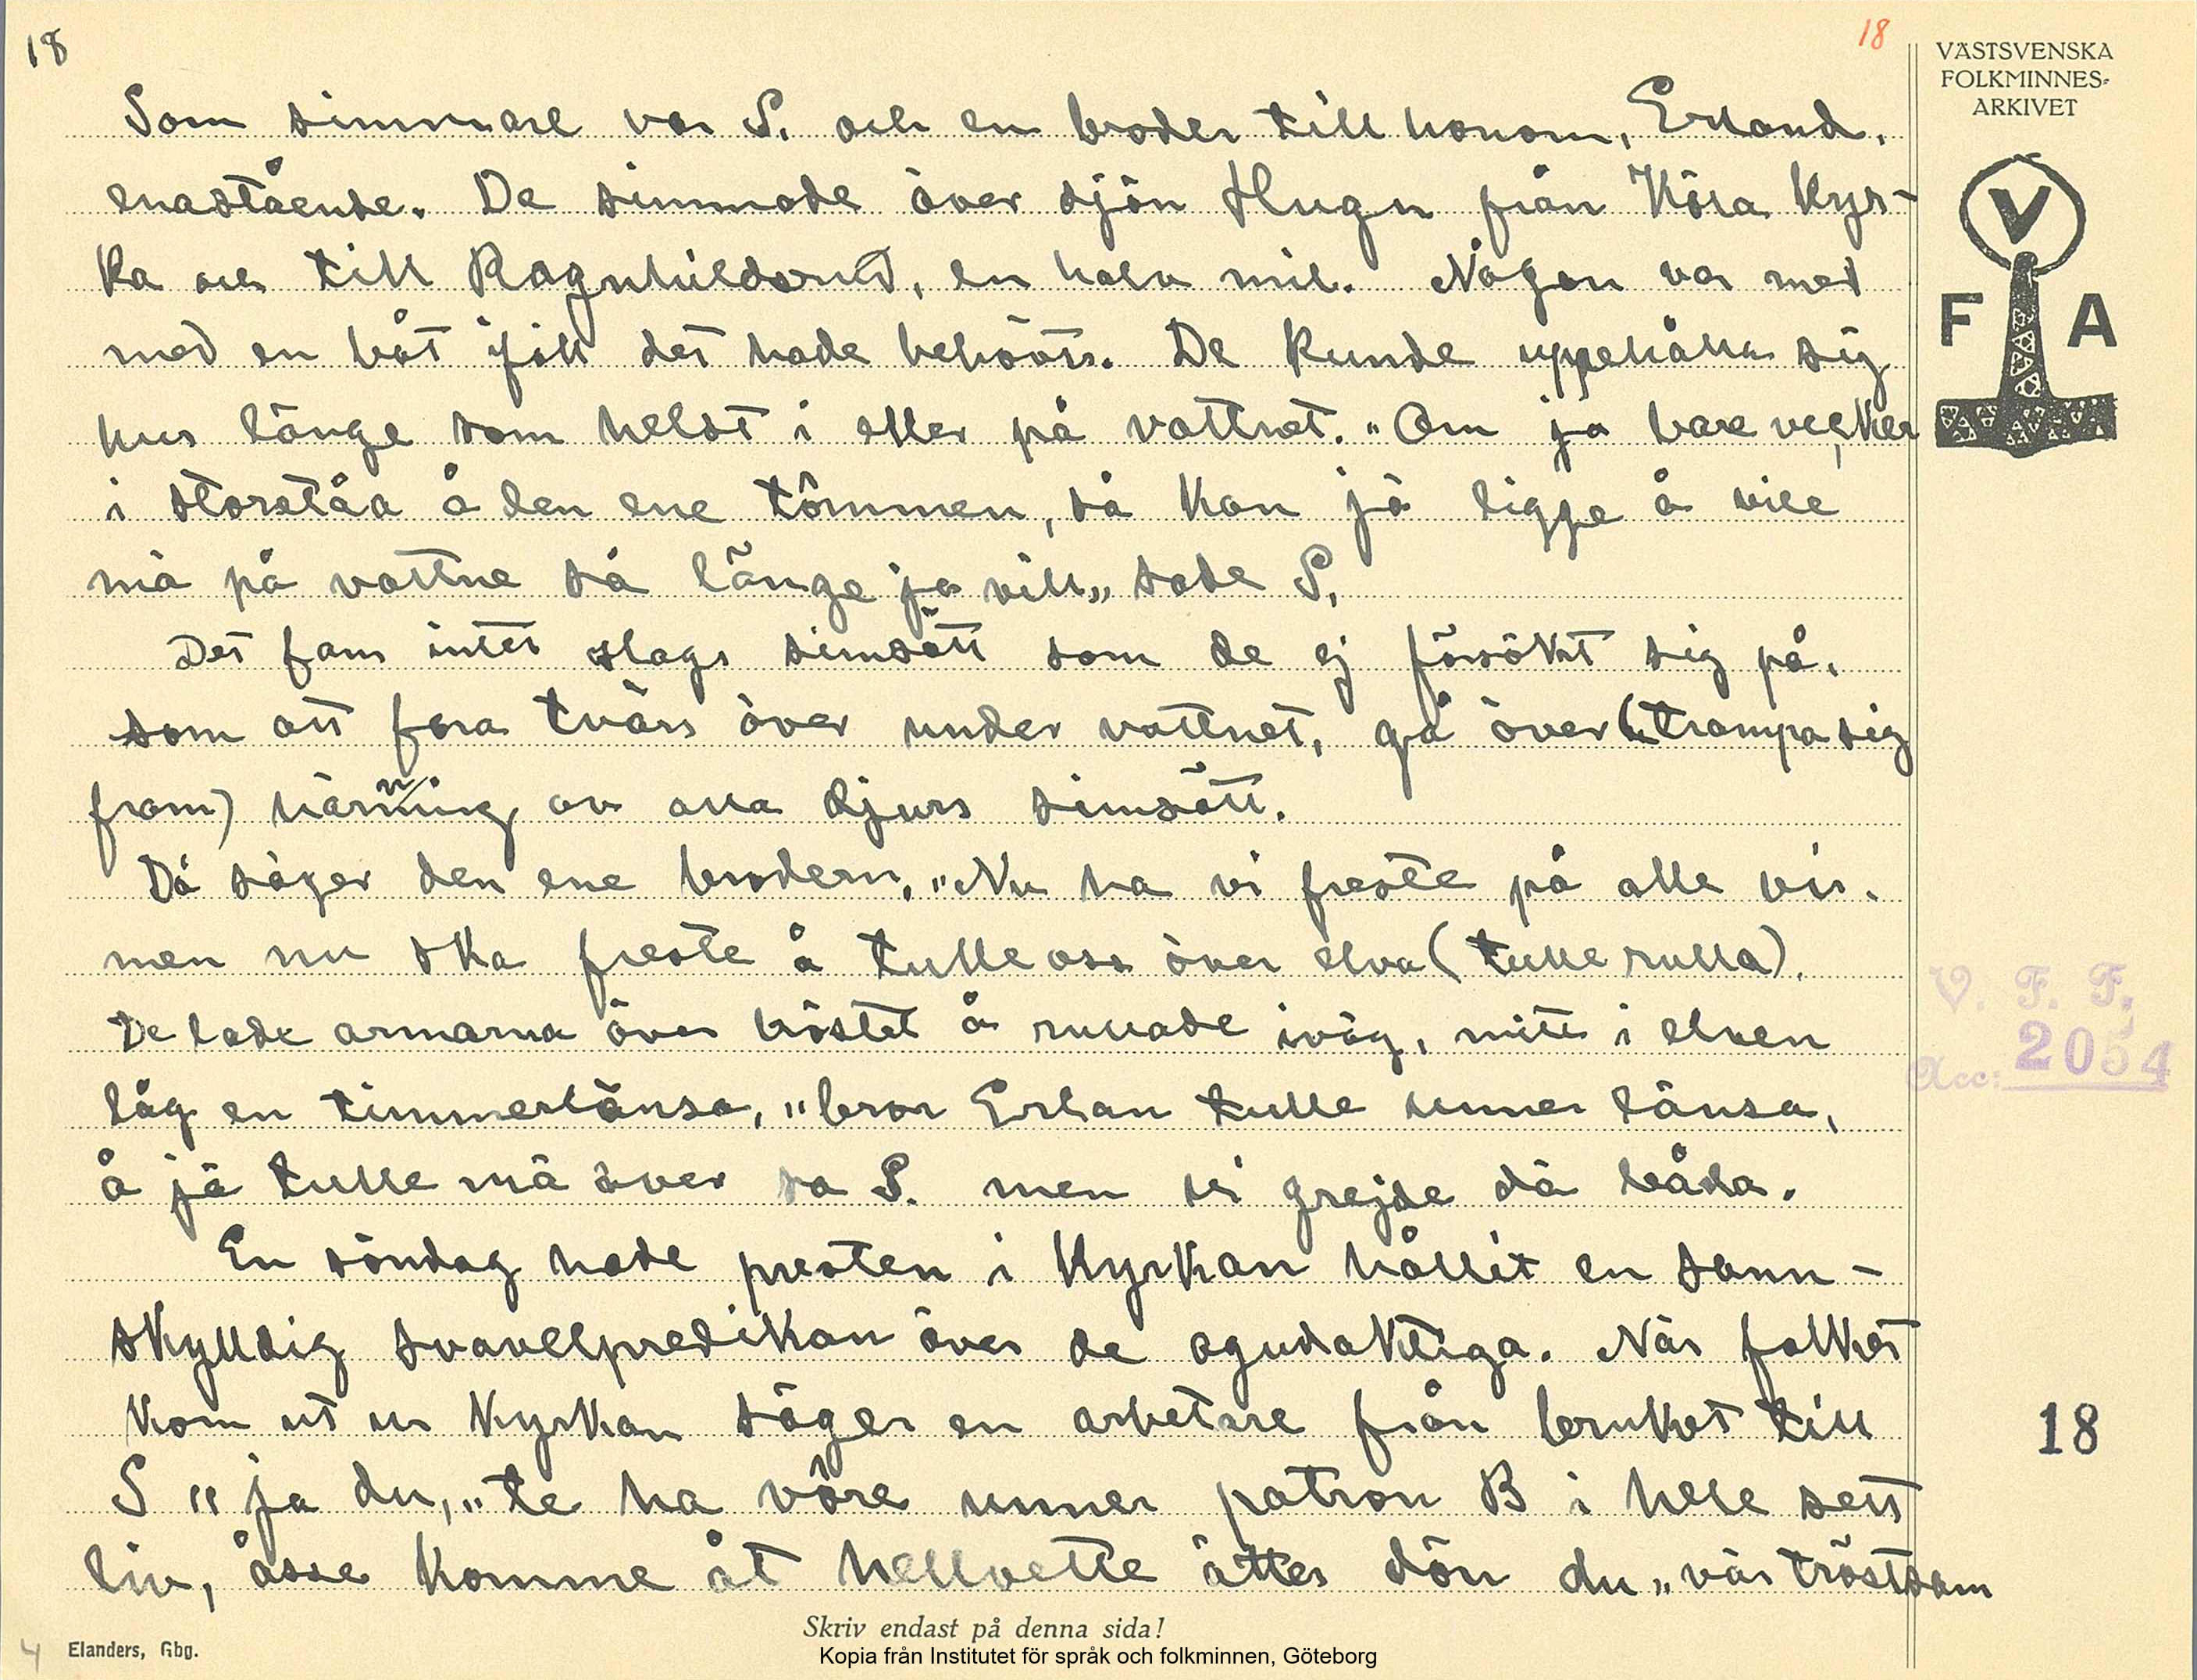 18
18
VÄSTSVENSKA
FOLKMINNES-
ARKIVET
V
F A
Som simmare var S. och en broder till honom, Erland,
enastående. De simmade över sjön Hugn från Köla kyr-
ka och till Ragnhildsrud, en halv mil. Någon var med
med en båt ifall det hade behövts. De kunde uppehålla sig
hur länge som helst i eller på vattnet. "Om ja bare vecker
i storståa å den ene tômmen, så kan jä ligge å vile
mä på vattne så länge ja vill" sade S.
Det fans intet slags simsätt som de ej försökt sig på,
som att fara tvärs över under vattnet, gå över (trampa sig
fram) härmning av alla djurs simsätt.
Då säger den ene brodern, "Nu ha vi freste på alle vis,
men nu ska freste å tulle oss över elva (tulle rulla).
De lade armarna över bröstet å rullade iväg, mitt i elven
låg en timmerlänsa, "bror Erlan tulle unner länsa,
å jä tulle mä över sa S. men vi grejde dä båda.
En söndag hade presten i kyrkan hållit en sann-
skylldig svavelpredikan över de ogudaktiga. När folket
kom ut ur kyrkan säger en arbetare från bruket till
S "ja du, "te ha vôre unner patron B i hele sett
liv, åsse komme åt hellvette ätter dön du" vär tröstsam
V. F. F.
Acc: 2054
18
Skriv endast på denna sida!
4 Elanders, Gbg.
Kopia från Institutet för språk och folkminnen, Göteborg